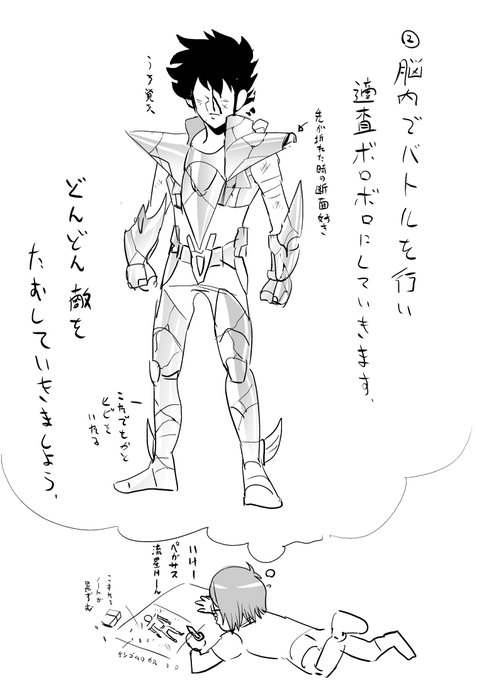 ②脳内でバトルを行い
適査ボロボロにしていきます。
先が折れた時の断面好き
うろ覚え
どんどん敵を
たおしていきましょう。
これでもかと
ヒビを
いれる
いけー
ペガサス
流星けーん
こすれて
ノートが
黒ずむ
ケシゴムのカス